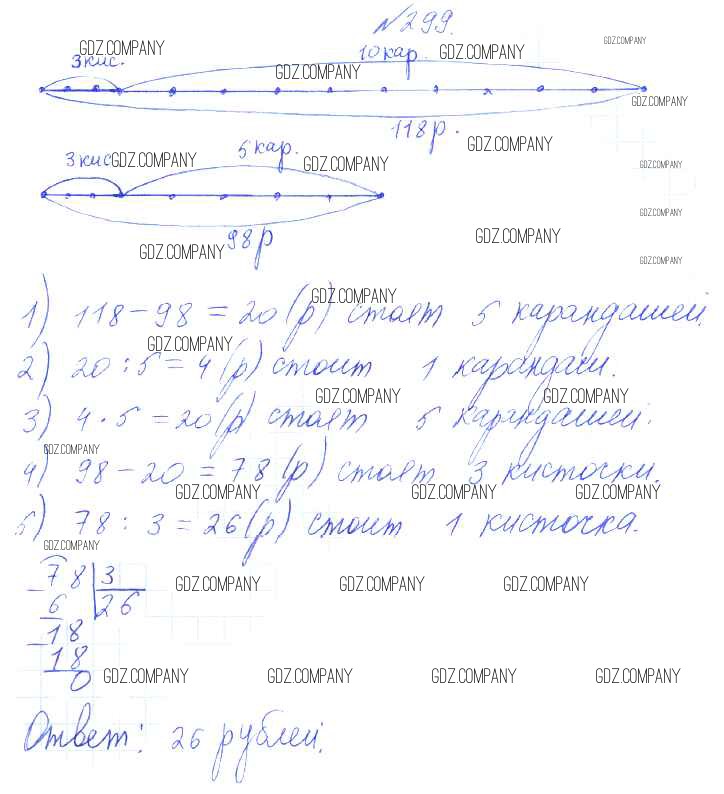 №299.
GDZ.COMPANY GDZ.COMPANY GDZ.COMPANY
3 кис. 10 кар.
GDZ.COMPANY
GDZ.COMPANY
118 р.
GDZ.COMPANY
5 кар.
3 кис GDZ.COMPANY GDZ.COMPANY GDZ.COMPANY
GDZ.COMPANY
98 р
GDZ.COMPANY GDZ.COMPANY
GDZ.COMPANY
GDZ.COMPANY
1) 118 - 98 = 20 (р) стоят 5 карандашей.
GDZ.COMPANY
2) 20 : 5 = 4 (р) стоит 1 карандаш.
GDZ.COMPANY GDZ.COMPANY
3) 4 · 5 = 20 (р) стоят 5 карандашей.
GDZ.COMPANY
4) 98 - 20 = 78 (р) стоят 3 кисточки.
GDZ.COMPANY GDZ.COMPANY GDZ.COMPANY
5) 78 : 3 = 26 (р) стоит 1 кисточка.
GDZ.COMPANY
78 3
GDZ.COMPANY GDZ.COMPANY GDZ.COMPANY
6 26
18
18
0 GDZ.COMPANY GDZ.COMPANY GDZ.COMPANY GDZ.COMPANY
Ответ: 26 рублей.